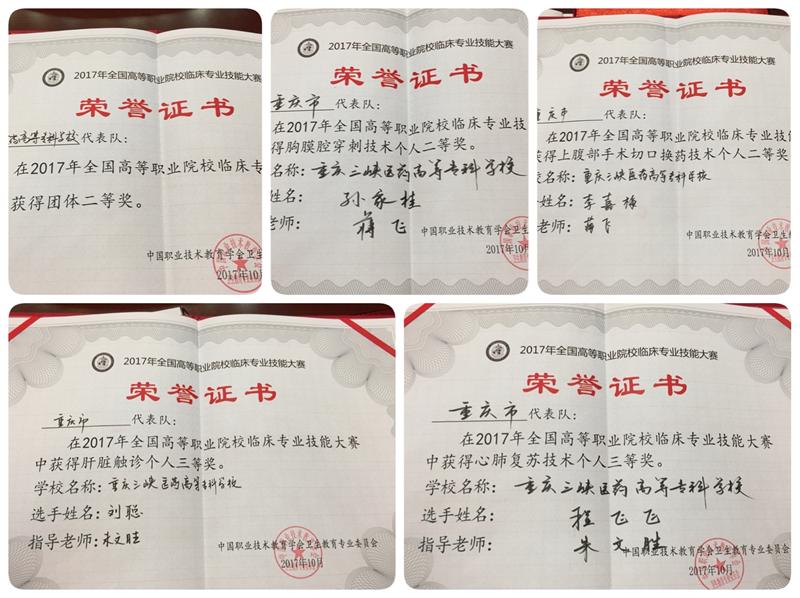 2017年全国高等职业院校临床专业技能大赛
荣誉证书
高等专科学校代表队：
在2017年全国高等职业院校临床专
获得团体二等奖。
中国职业技术教育学会卫生
2017年10月
2017年全国高等职业院校临床专业技能大赛
荣誉证书
重庆市代表队：
在2017年全国高等职业院校临床专业技
得胸膜腔穿刺技术个人二等奖。
名称：重庆三峡医药高等专科学校
姓名：孙家桂
老师：蒋飞
中国职业技术教育学会卫生
2017年10
2017年全国高等职业院校临床专业技能大赛
荣誉证书
重庆市代表队：
在2017年全国高等职业院校临床专业技
获得上腹部手术切口换药技术个人二等奖
校名称：重庆三峡医药高等专科学校
姓名：李嘉
老师：蒋飞
中国职业技术教育学会卫生
2017年10月
2017年全国高等职业院校临床专业技能大赛
荣誉证书
重庆市代表队：
在2017年全国高等职业院校临床专业技能大赛
中获得肝脏触诊个人三等奖。
学校名称：重庆三峡医药高等专科学校
选手姓名：刘聪
指导老师：朱文胜
中国职业技术教育学会卫生教育专业委员会
2017年10月
2017年全国高等职业院校临床专业技能大赛
荣誉证书
重庆市代表队：
在2017年全国高等职业院校临床专业技能大赛
中获得心肺复苏技术个人三等奖。
学校名称：重庆三峡医药高等专科学校
选手姓名：程飞飞
指导老师：朱文胜
中国职业技术教育学会卫生教育专业委员会
2017年10月